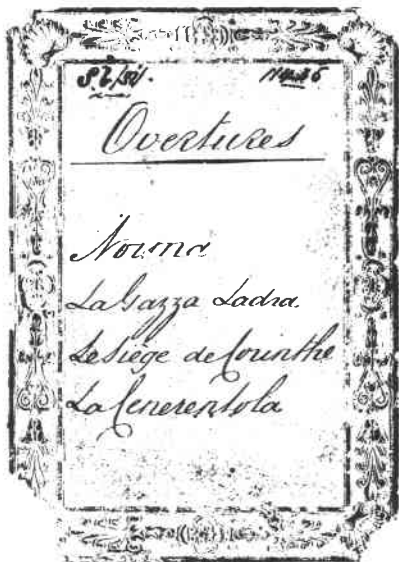 Overtures
Norma
La Gazza Ladra.
Le Siége de Corinthe
La Cenerentola